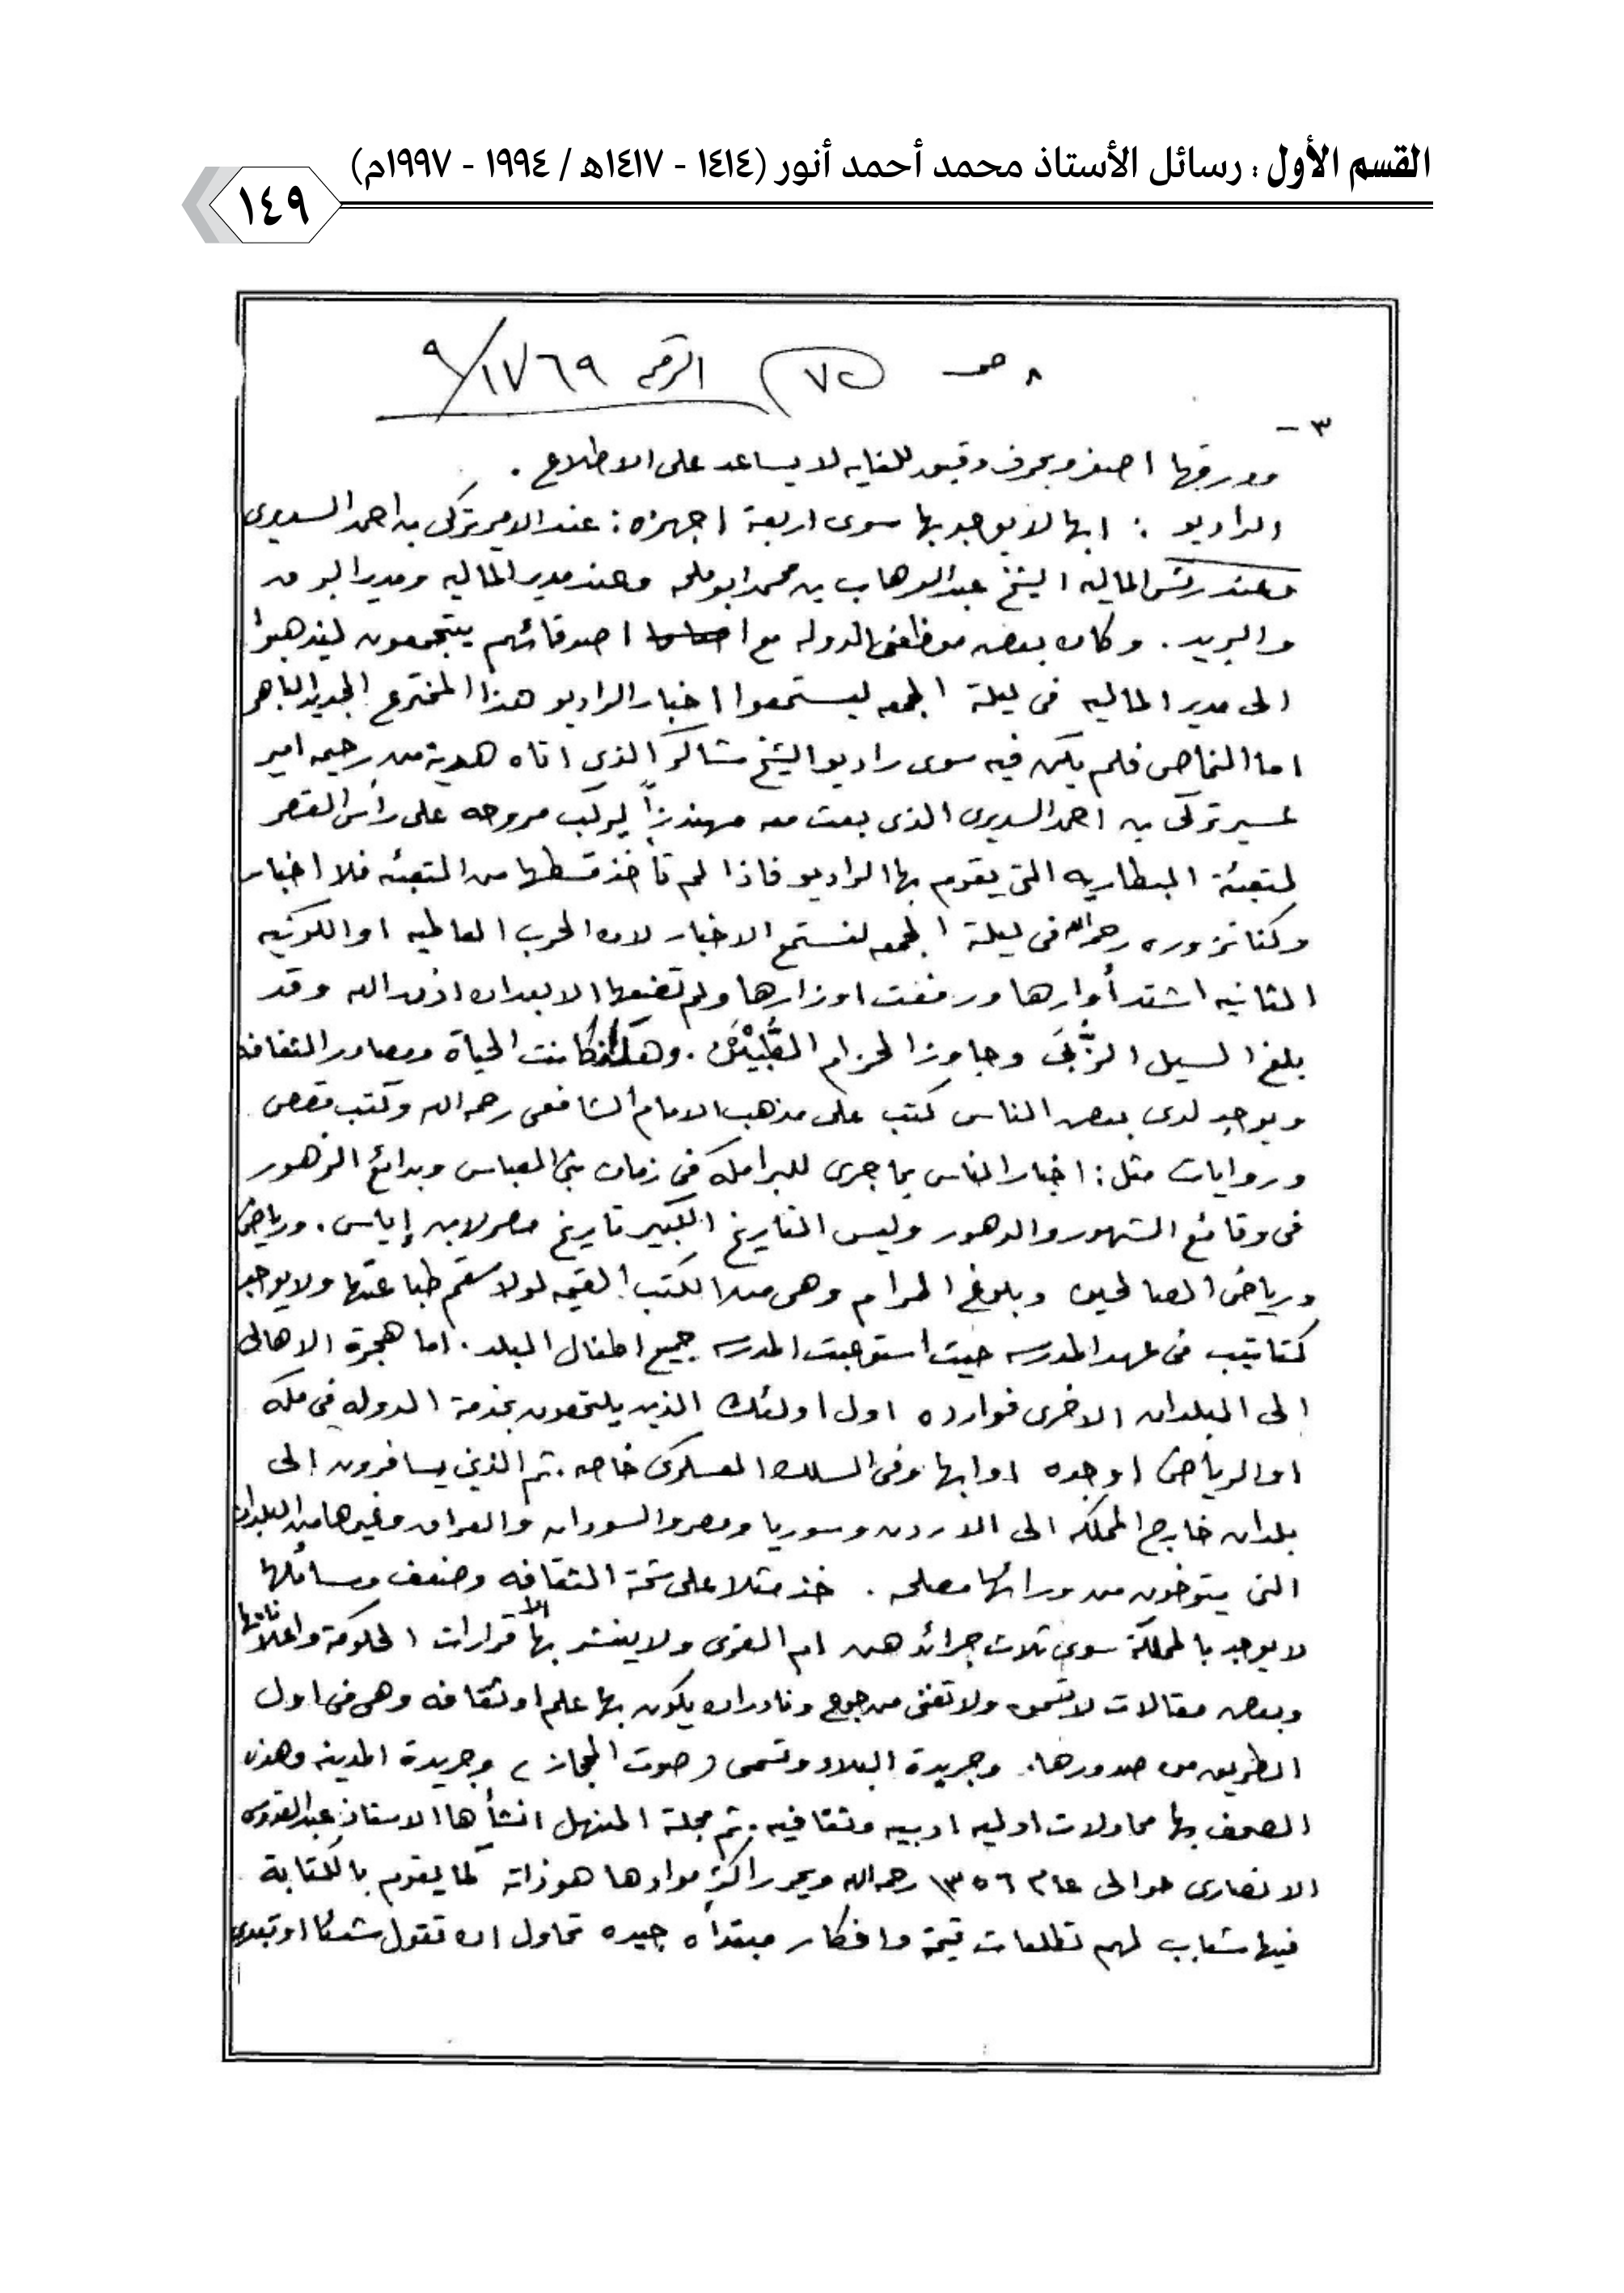 القسم الأول : رسائل الأستاذ محمد أحمد أنور (١٤١٤ - ١٤١٧هـ / ١٩٩٤ - ١٩٩٧م)
١٤٩
٨ ص الرقم ٩/١٧٦٩
٣ -
وورقها اصفر وبحرف دقيق للغايه لا يساعد على الاطلاع .
الراديو : ابها لا يوجد بها سوى اربعة اجهزه : عند الامير تركي بن احمد السديرى
وعند رئيس الماليه الشيخ عبدالوهاب بن محمد ابو ملحه وعند مدير الماليه ومدير البرق
والبريد . وكان بعض موظفى الدوله مع اصدقائهم يتجمعون ليذهبوا
الى مدير الماليه فى ليلة الجمعه ليستمعوا اخبار الراديو هذا المخترع الجديد الباهر
اما النماص فلم يكن فيه سوى راديو الشيخ شاكر الذي اتاه هدية من رحيمه امير
عسير تركى بن احمد السديرى الذى بعث معه مهندزاً ليركب مروحه على رأس القصر
لتعبئة البطاريه التى يقوم بها الراديو فاذا لم تأخذ قسطها من التعبئه فلا اخبار
وكنا نزوره رحمه الله فى ليلة الجمعه لنستمع الاخبار لان الحرب العالميه او الكونيه
الثانيه اشتد أوارها ورفعت اوزارها ولم تضعها الا بعد ان اذن الله وقد
بلغ السيل الزُّبَى وجاوز الحزام الطُّبْيَيْن . وهكذا كانت الحياة ومصادر الثقافه
ويوجد لدى بعض الناس كتب على مذهب الامام الشافعى رحمه الله وكتب قصص
وروايات مثل : اخبار الناس بما جرى للبرامكه فى زمان بني العباس وبدائع الزهور
فى وقائع الشهور والدهور وليس التاريخ الكبير تاريخ مصر لابن إياس . ورياض
ورياض الصالحين وبلوغ المرام وهى من الكتب القيمه لولا سقم طباعتها ولا يوجد
كتاتيب فى عهد المدرسه حيث استوجبت المدرسه جميع اطفال البلد . اما هجرة الاهالى
الى البلدان الاخرى فوارده اول اولئك الذين يلتحقون بخدمة الدوله في مكه
او الرياض او جده او ابها وفى السلك العسكرى خاصه . ثم الذين يسافرون الى
بلدان خارج المملكه الى الاردن وسوريا ومصر والسودان والعراق وغيرها من البلدان
التى يتوخون من ورائها مصلحه . خذ مثلا على شحة الثقافه وضعف وسائلها
لا يوجد بالمملكة سوى ثلاث جرائد هى ام القرى ولا ينشر بها الا قرارات الحكومة واعلاناتها
وبعض مقالات لا تسمن ولا تغنى من جوع ونادرا ان يكون بها علم او ثقافه وهى فى اول
الطريق من صدورها . وجريدة البلاد وتسمى ( صوت الحجاز ) وجريدة المدينه وهذه
الصحف بها محاولات اوليه ادبيه وثقافيه . ثم مجلة المنهل انشأها الاستاذ عبدالقدوس
الانصارى حوالى عام ١٣٥٦ رحمه الله ويحرر اكثر موادها هو ذاته كما يقوم بالكتابة
فيها شباب لهم تطلعات قيمة وافكار مبتدأه جيده تحاول ان تقول شيئا او تبدى